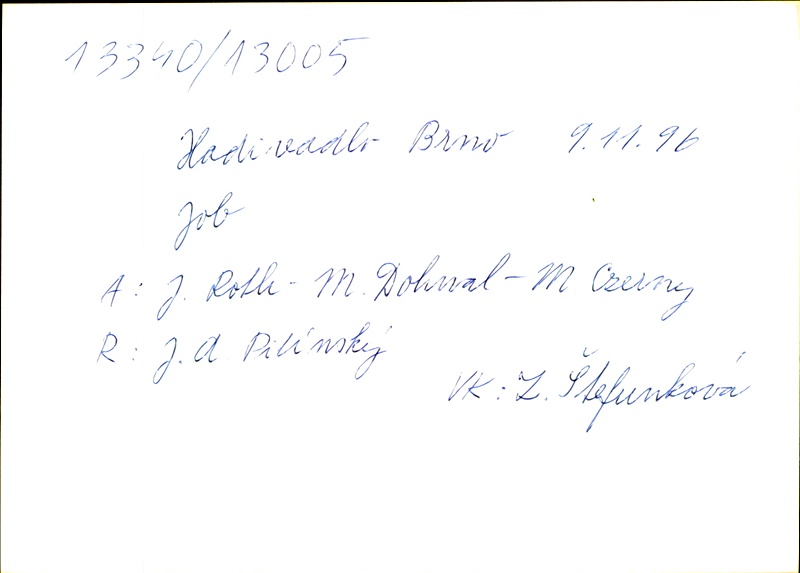 13340/13005
Hadivadlo Brno 9.11.96
Job
A: J. Roth - M. Dohnal - M Czerny
R: J. A. Pitínský
VK: Z. Štefunková